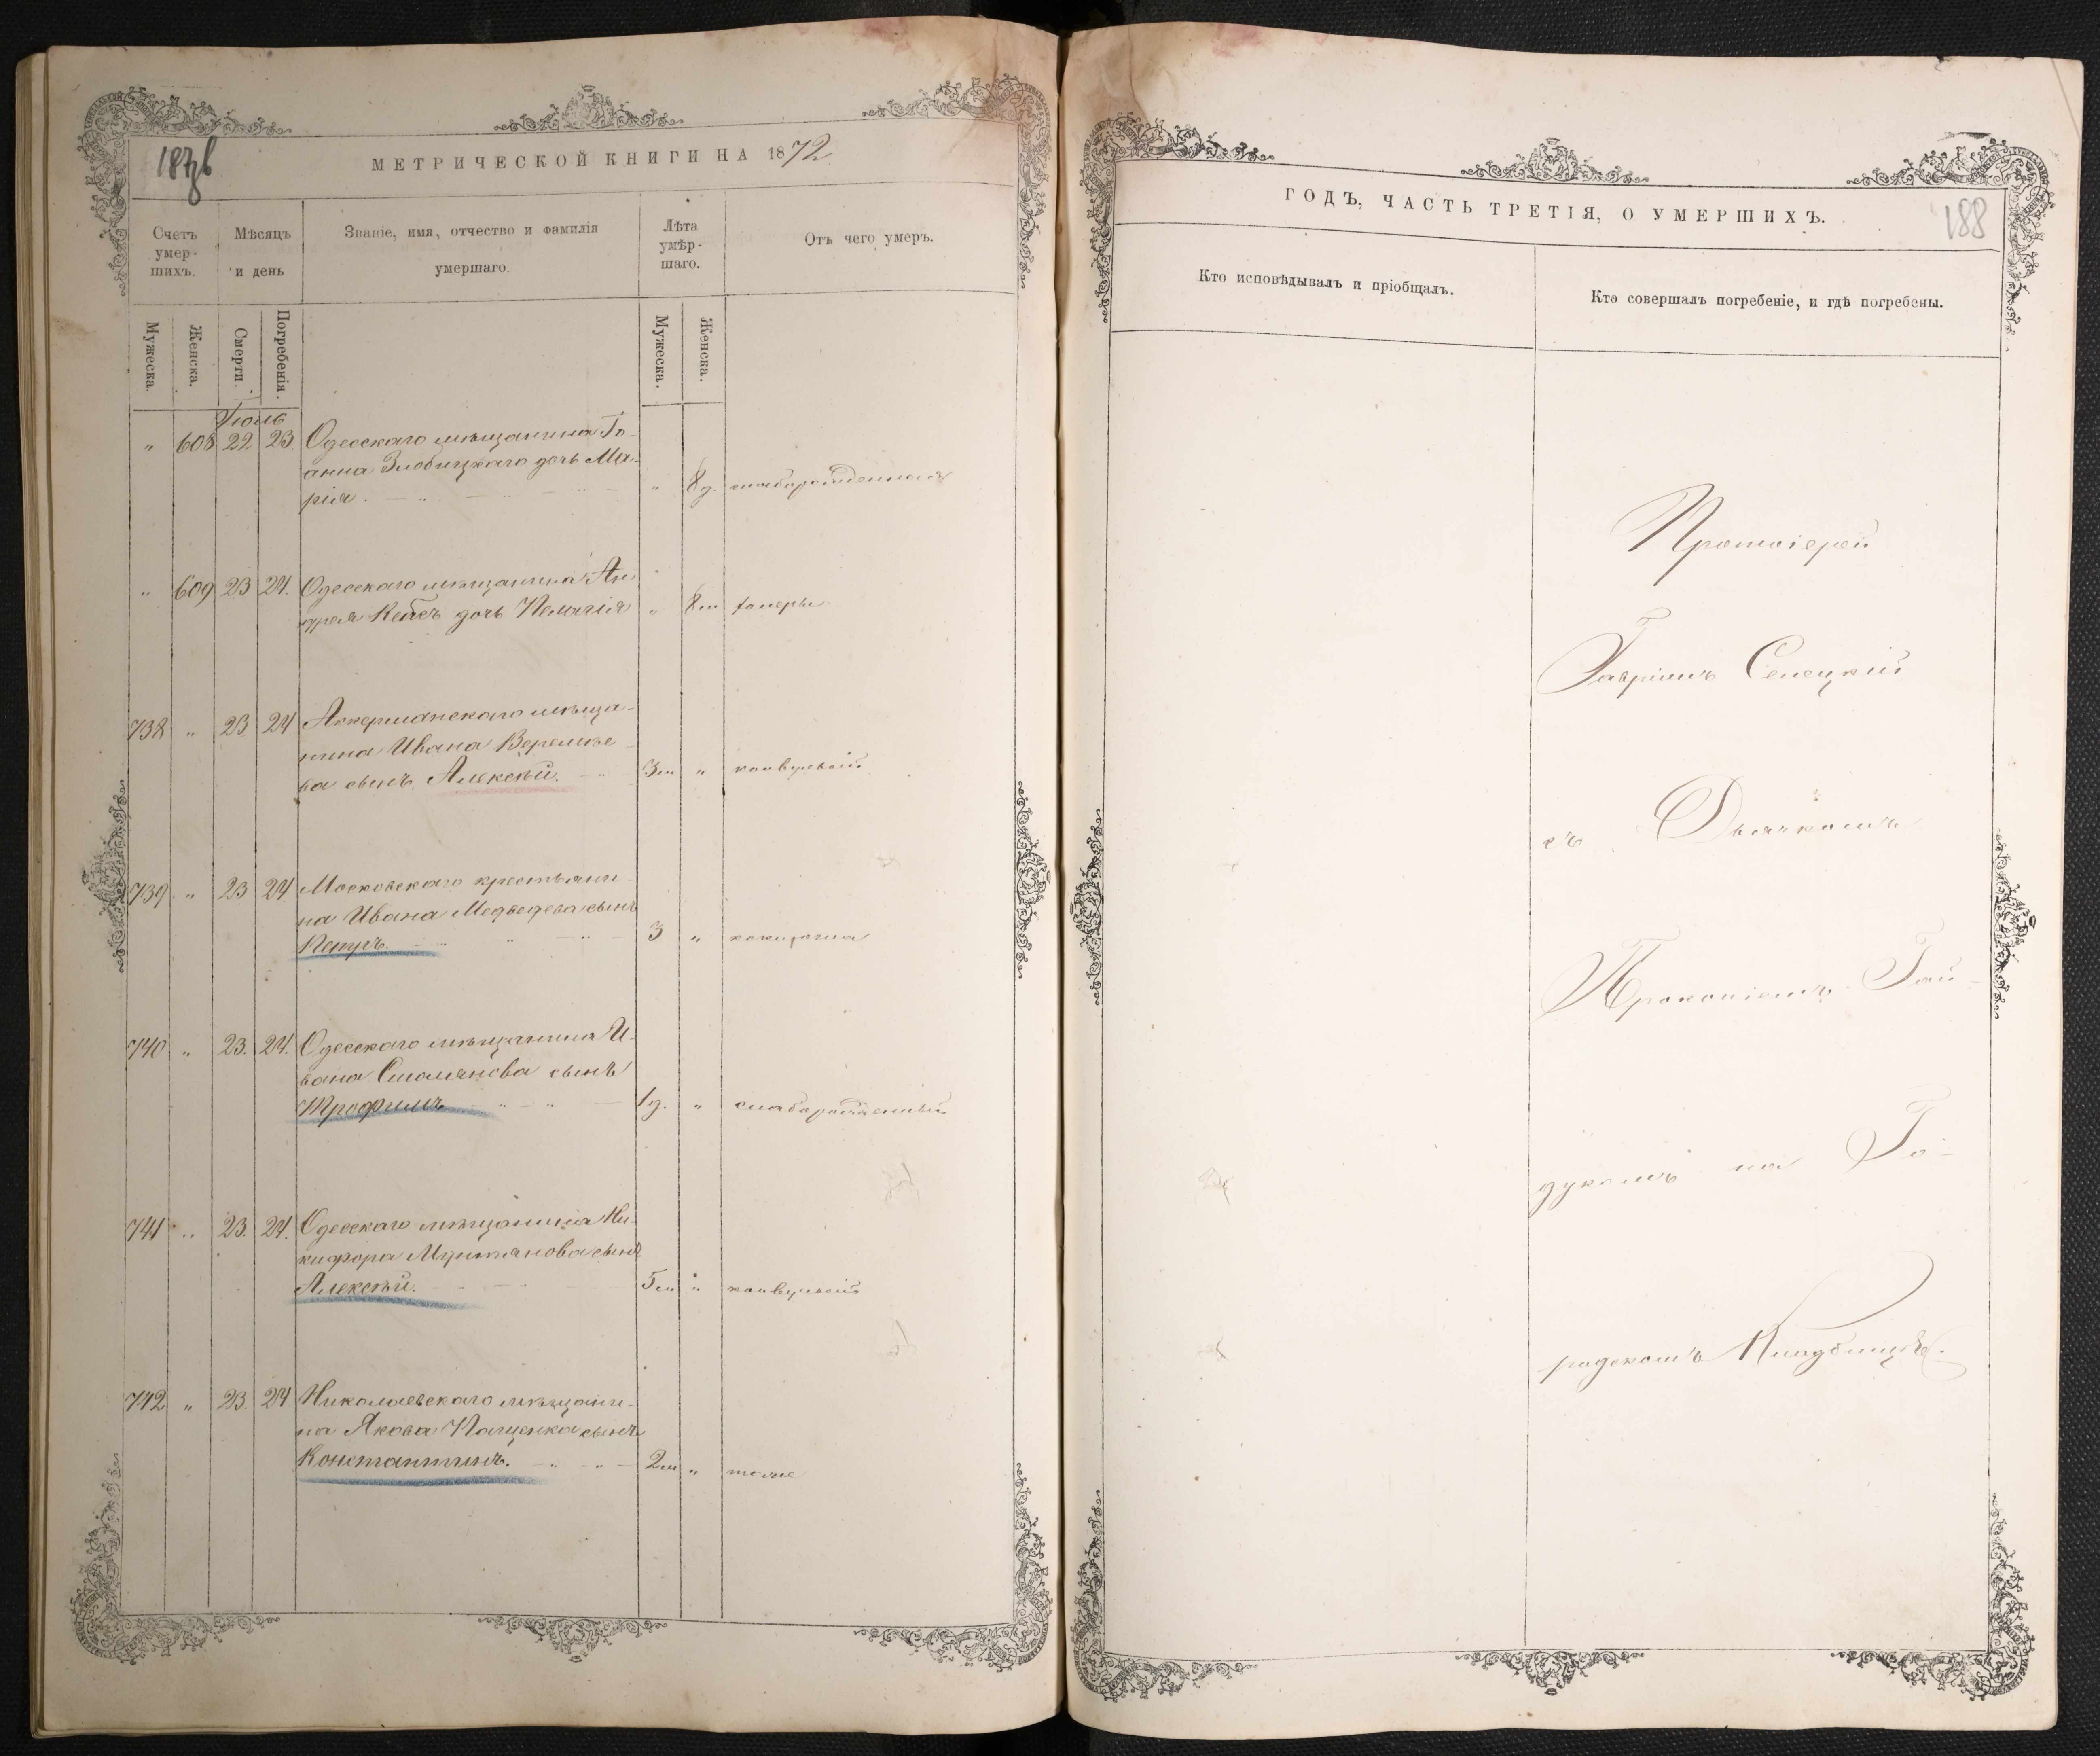 МЕТРИЧЕСКОЙ КНИГИ НА 1872
Счетъ умер-шихъ.
Мѣсяцъ и день
Званіе, имя, отчество и фамилія умершаго.
Лѣта умѣр-шаго.
Отъ чего умеръ.
Мужеска.
Женска.
Смерти.
Погребенія.
Мужеска.
Женска.
Іюль
" 608 22 23 Одесскаго мѣщанина Іо-
анна Злобицкаго дочь Ма-
рія. " 8 д. слаборожденная
" 609 23 24. Одесскаго мѣщанина Ан
дрея дочь Пелагія " 8 м
738 " 23 24 Аккерманскаго мѣща-
нина Ивана Веремѣе
ва сынъ Алексѣй. 3 м " конвульсій
739 " 23 24 Московскаго крестьяни
на Ивана Медведева сынъ
Петръ. 3 "
740 " 23. 24. Одесскаго мѣщанина И-
вана Смолянова сынъ
Трофимъ 1 д. " слаборожденный
741 " 23. 24. Одесскаго мѣщанина Ни-
кифора Мунтянова сынъ
Алексѣй. 5 м " конвульсій
742 " 23. 24 Николаевскаго мѣщани-
на Якова Пащенка сынъ
Константинъ. 2 м " тоже
ГОДЪ, ЧАСТЬ ТРЕТІЯ, О УМЕРШИХЪ.
188
Кто исповѣдывалъ и пріобщалъ.
Кто совершалъ погребеніе, и гдѣ погребены.
Протоіерей
Гавріилъ Селецкій
съ Дьячкомъ
Прокопіемъ Гай-
дукомъ на Го-
родскомъ Кладбищѣ.